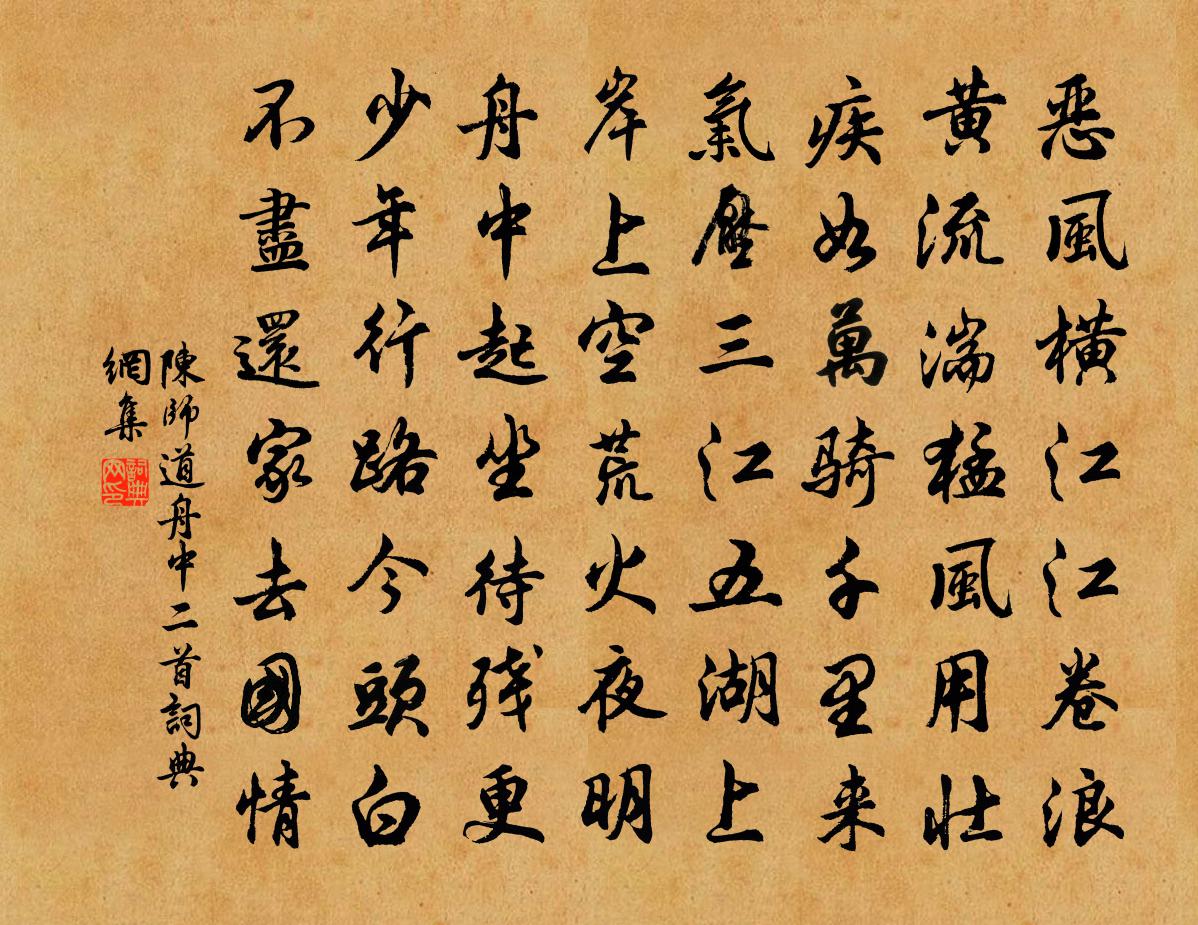 惡風橫江江卷浪
黃流湍猛風用壯
疾如萬騎千里来
氣壓三江五湖上
岸上空荒火夜明
舟中起坐待残更
少年行路今頭白
不盡還家去國情
陳師道舟中二首詞典
網集
詞典網印